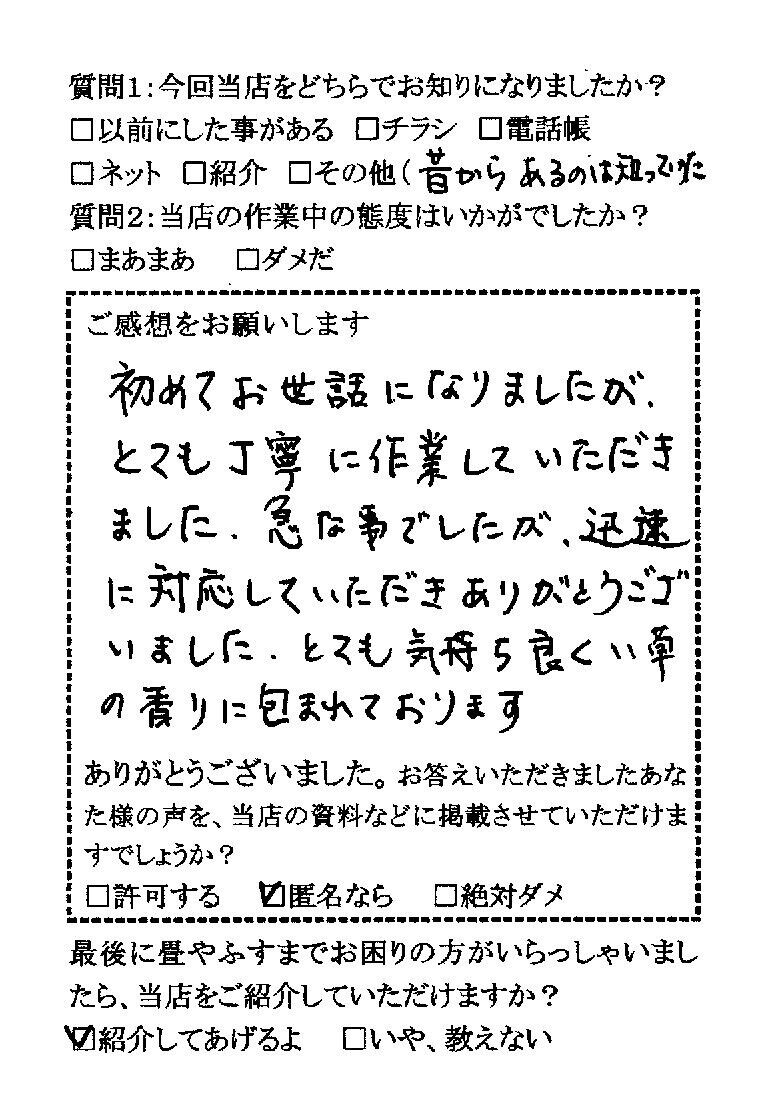 質問1:今回当店をどちらでお知りになりましたか?
□以前にした事がある □チラシ □電話帳
□ネット □紹介 □その他(昔から あるのは知っていた
質問2:当店の作業中の態度はいかがでしたか?
□まあまあ □ダメだ
ご感想をお願いします
初めてお世話になりましたが、
とても丁寧に作業していただき
ました.急な事でしたが、迅速
に対応していただきありがとうござ
いました.とても気持ち良くい草
の香りに包まれております
ありがとうございました。お答えいただきましたあな
た様の声を、当店の資料などに掲載させていただけま
すでしょうか?
□許可する ☑匿名なら □絶対ダメ
最後に畳やふすまでお困りの方がいらっしゃいまし
たら、当店をご紹介していただけますか?
☑紹介してあげるよ □いや、教えない